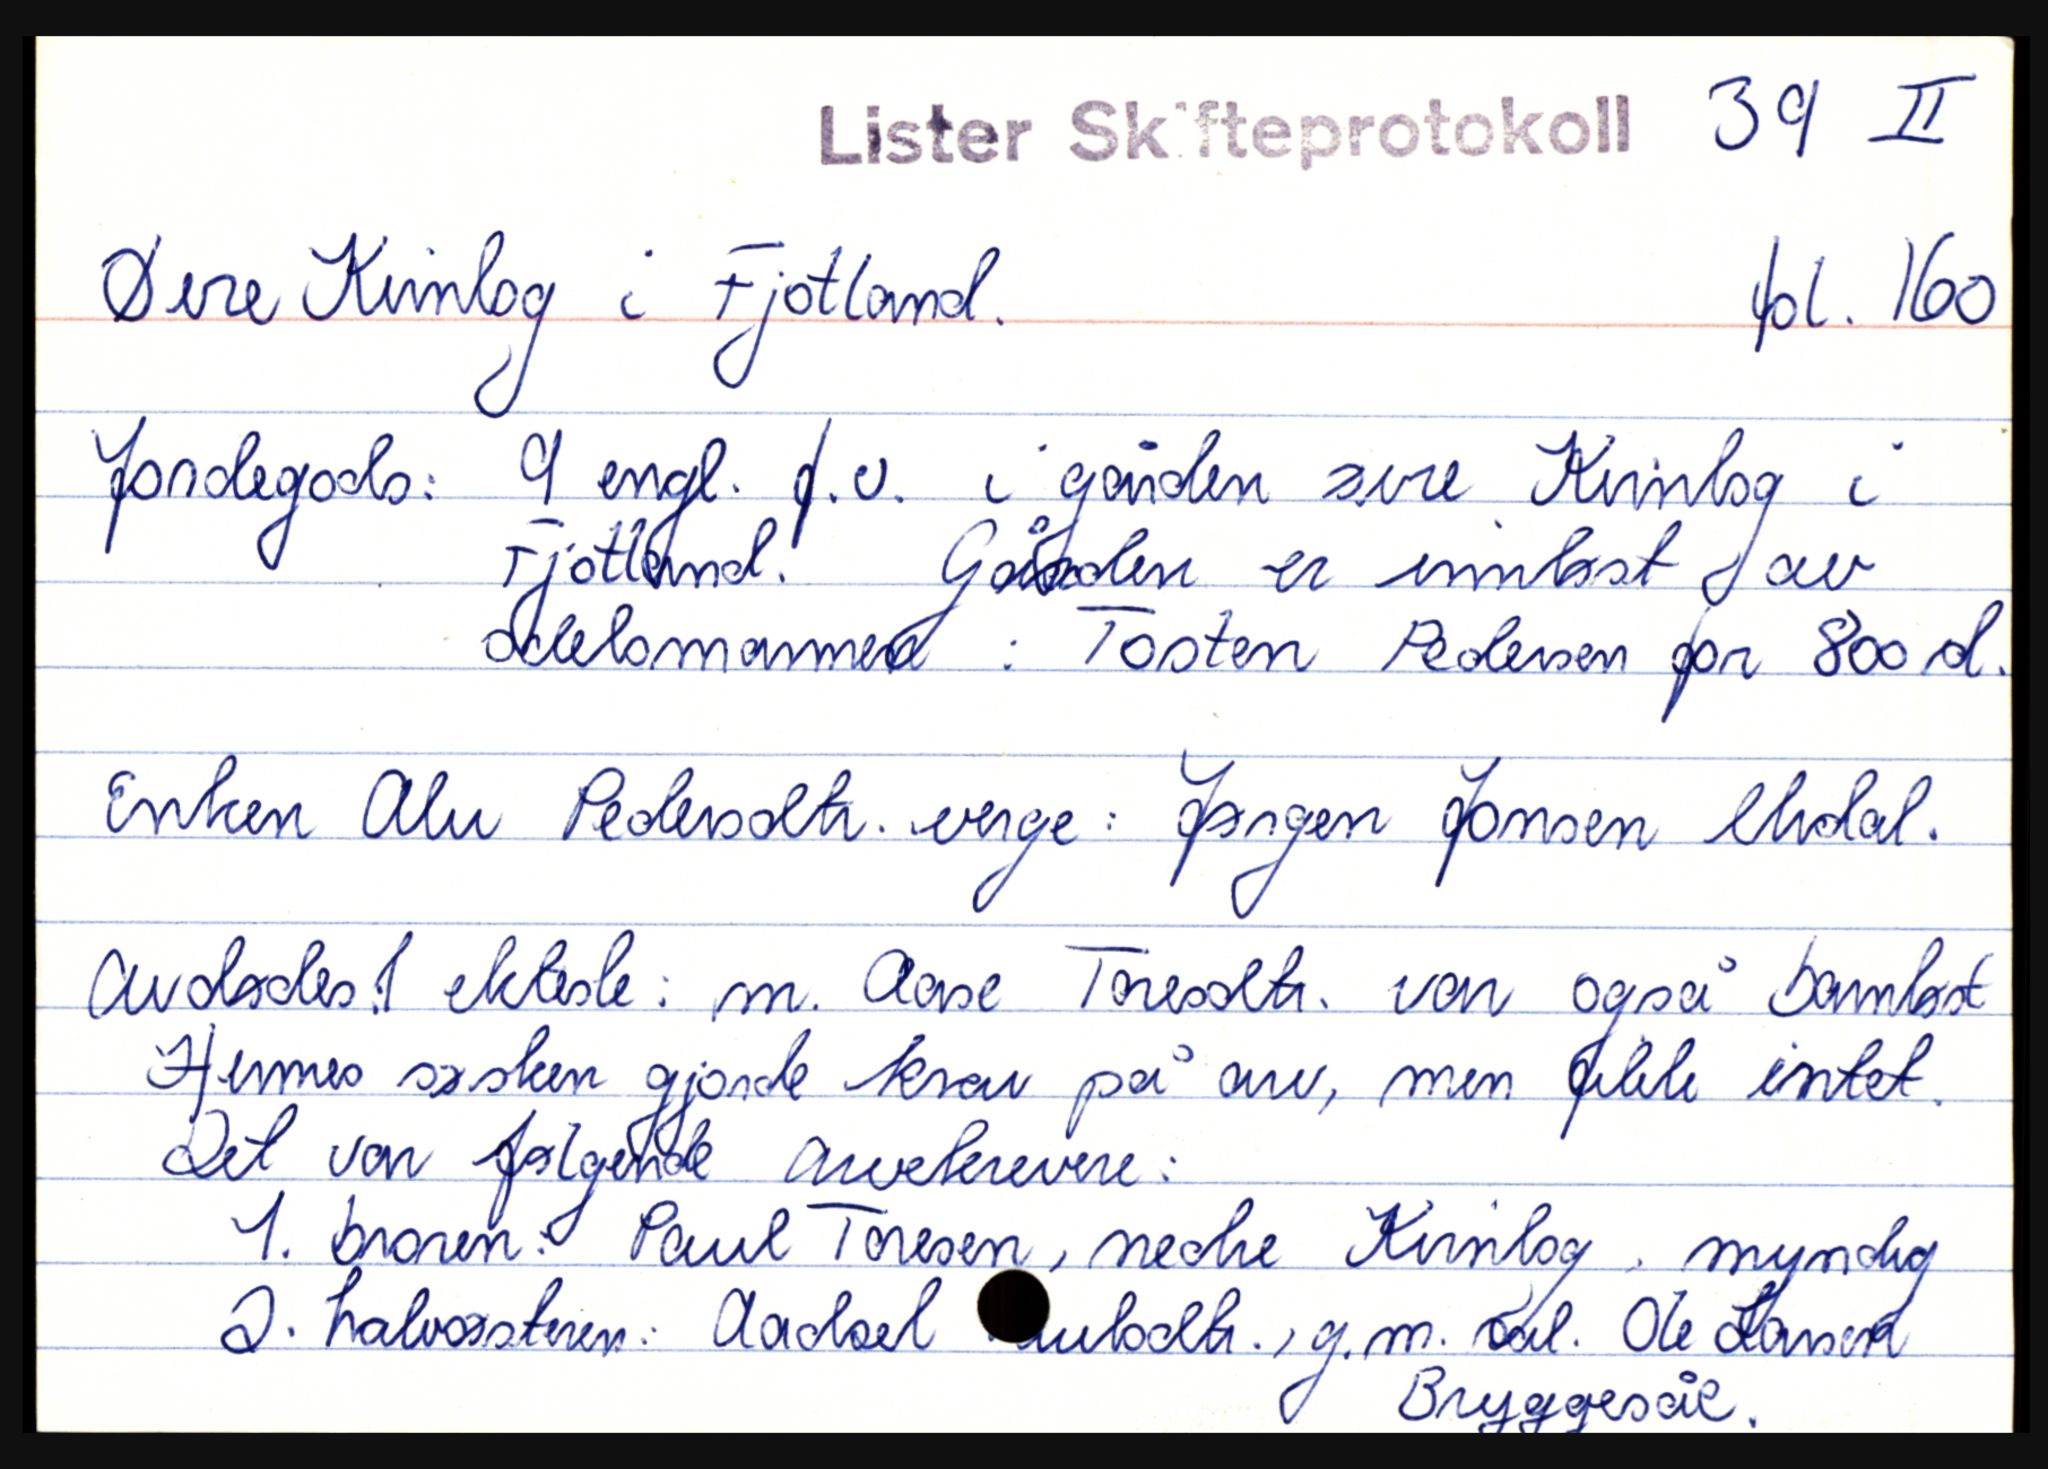 Lister Skifteprotokoll 39 II
Øvre Kvinlog i Fjotland. fol. 160
Jordegods: 9 engl. f.v. i gården øvre Kvinlog i
Fjotland. Gården er innløst av
odelsmannen : Tosten Pedersen for 800 d.
Enken Alu Pedersdtr. verge: Jørgen Jonsen Urdal.
Avdødes 1 ekteske: m. Aase Toresdtr. var også barnløst
Hennes søsken gjorde krav på arv, men fikk intet.
Det var følgende arvekrevere:
1. broren: Paul Toresen, nedre Kvinlog, myndig
2. halvsøsteren: Aadsel aulsdtr., g.m. sal. Ole Larsen
Bryggesåk.